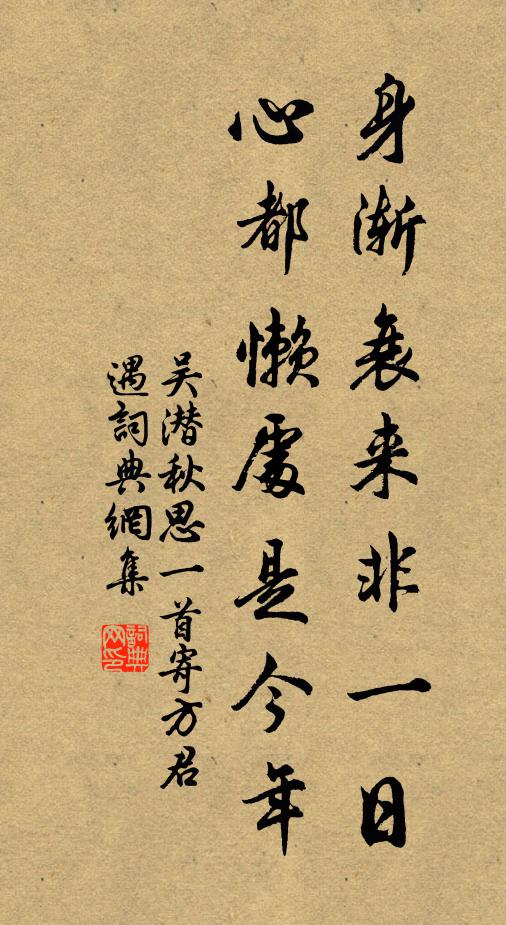 身渐衰来非一日
心都懒處是今年
吴潜秋思一首寄方君
遇詞典網集
詞典网印